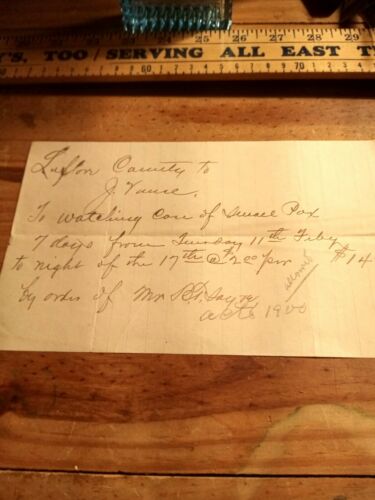 23 24 25 26 27 28 29
'S, TOO / SERVING ALL EAST T
60 70
County to
J. Vance.
To watching case of Small Pox
7 days from Tuesday 11th Feby
to night of the 17th @ 200 per $14
allowed
by order of Mr
acts 1900